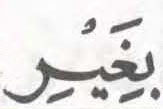 بِغَيْرِ